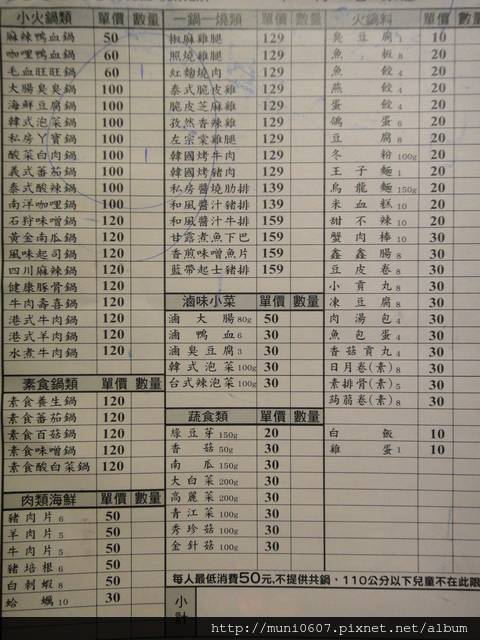 小火鍋類 單價 數量
麻辣鴨血鍋 50
咖哩鴨血鍋 60
毛血旺旺鍋 60
大腸臭臭鍋 100
海鮮豆腐鍋 100
韓式泡菜鍋 100
私房丫寶鍋 100
酸菜白肉鍋 100
義式蕃茄鍋 100
泰式酸辣鍋 100
南洋咖哩鍋 100
石狩味噌鍋 120
黃金南瓜鍋 120
風味起司鍋 120
四川麻辣鍋 120
健康豚骨鍋 120
牛肉壽喜鍋 120
港式牛肉鍋 120
港式羊肉鍋 120
水煮牛肉鍋 120
素食鍋類 單價 數量
素食養生鍋 120
素食蕃茄鍋 120
素食百菇鍋 120
素食味噌鍋 120
素食酸白菜鍋 120
肉類海鮮 單價 數量
豬肉片6 50
羊肉片5 50
牛肉片5 50
豬培根6 50
白刺蝦8 50
蛤蠣10 30
一鍋一燒類 單價 數量
椒麻雞腿 129
照燒雞腿 129
紅麴燒肉 129
泰式脆皮雞 129
脆皮芝麻雞 129
孜然香辣雞 129
左宗棠雞腿 129
韓國烤牛肉 129
韓國烤豬肉 129
私房醬燒肋排 139
和風醬汁豬排 139
和風醬汁牛排 159
甘露煮魚下巴 159
香煎味噌魚片 159
藍帶起士豬排 159
滷味小菜 單價 數量
滷大腸80g 50
滷鴨血6 30
滷臭豆腐3 30
韓式泡菜100g 30
台式辣泡菜100g 30
蔬食類 單價 數量
綠豆芽150g 20
香菇50g 30
南瓜150g 30
大白菜200g 30
高麗菜200g 30
青江菜100g 30
秀珍菇100g 30
金針菇100g 30
火鍋料 單價 數量
臭豆腐1 10
魚板8 20
魚餃4 20
燕餃4 20
蛋餃4 20
鴿蛋6 20
豆腐8 20
冬粉100g 20
王子麵1 20
烏龍麵150g 20
米血糕10 20
甜不辣10 20
蟹肉棒10 30
鑫鑫腸8 30
豆皮卷8 30
小貢丸8 30
凍豆腐8 30
肉湯包4 30
魚包蛋4 30
香菇貢丸4 30
日月卷(素)8 30
素排骨(素)5 30
蒟蒻卷(素)8 30
白飯 10
雞蛋1 10
每人最低消費50元,不提供共鍋、110公分以下兒童不在此限
小計
http://muni0607.pixnet.net/album